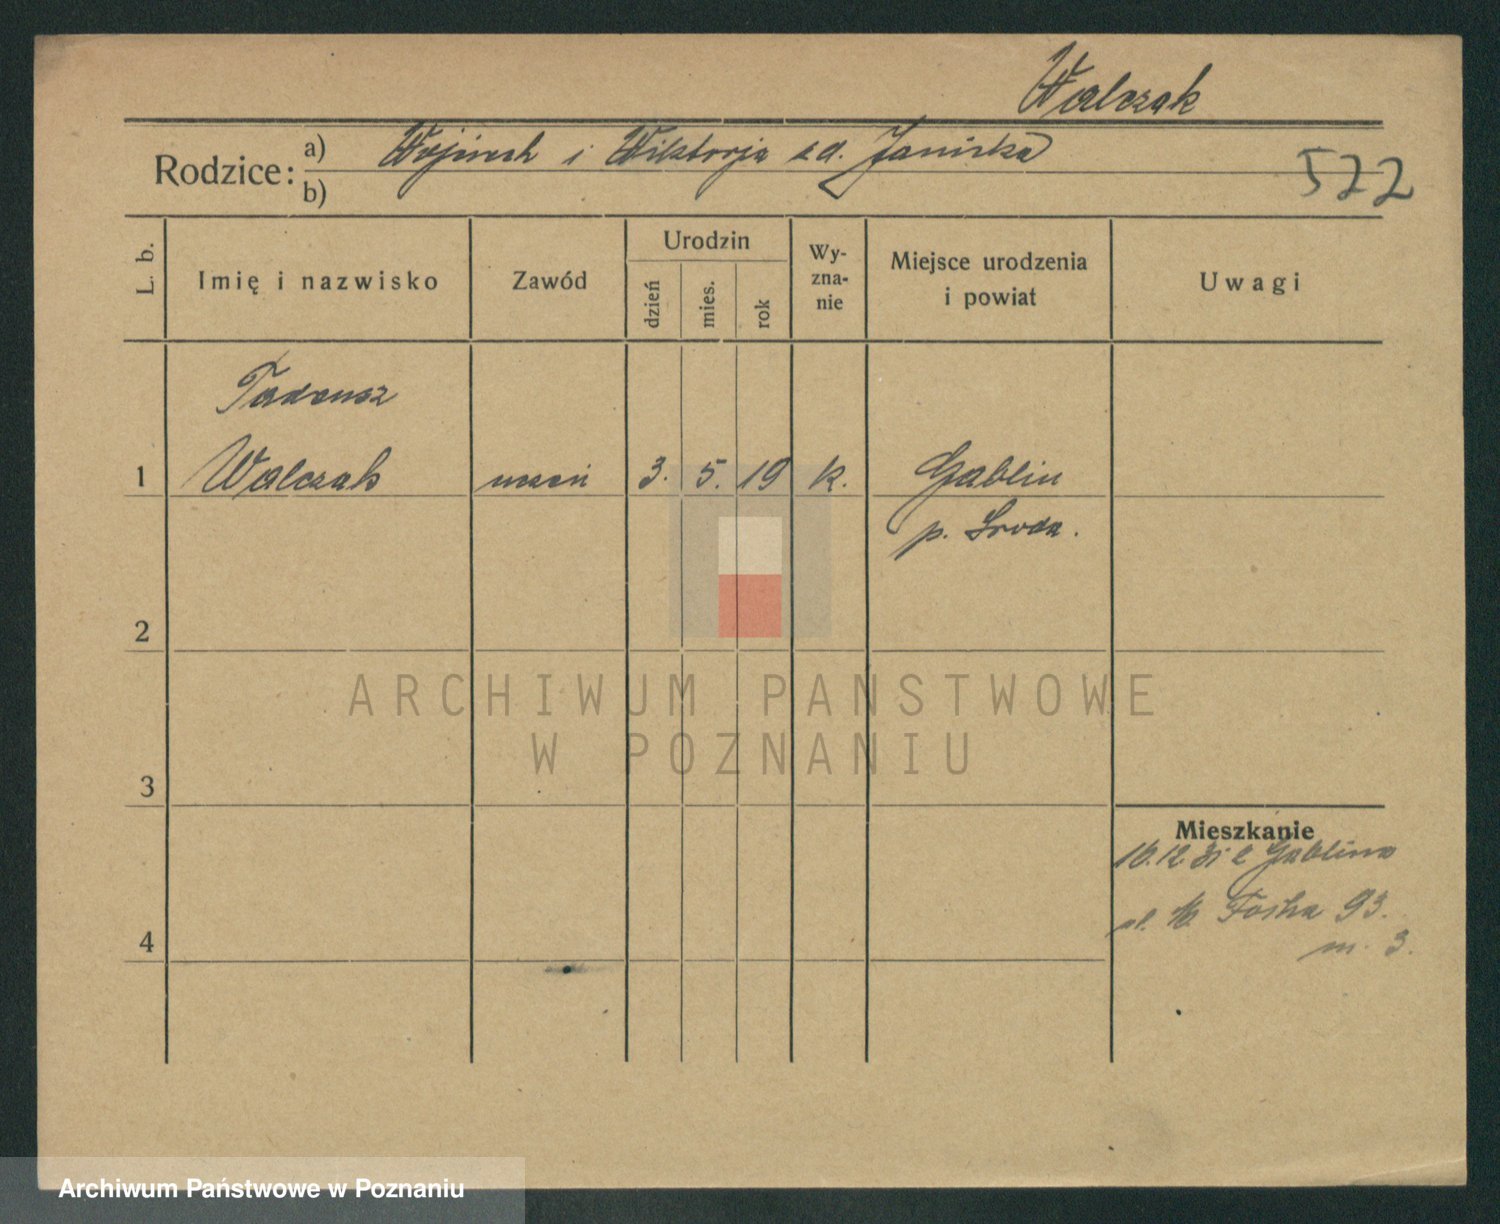 Walczak
Rodzice: a) Wojciech i Wiktorja z d. Janicka
b)
522
L. b.
Imię i nazwisko
Zawód
Urodzin
dzień
mies.
rok
Wy-
zna-
nie
Miejsce urodzenia
i powiat
Uwagi
Tadeusz
1 Walczak uczeń 3. 5. 19 k. Gablin
p. Sroda.
2
ARCHIWUM PAŃSTWOWE
W POZNANIU
3
Mieszkanie
16.12 31 z Gablina
ul. M. Focha 93.
m. 3.
4
Archiwum Państwowe w Poznaniu